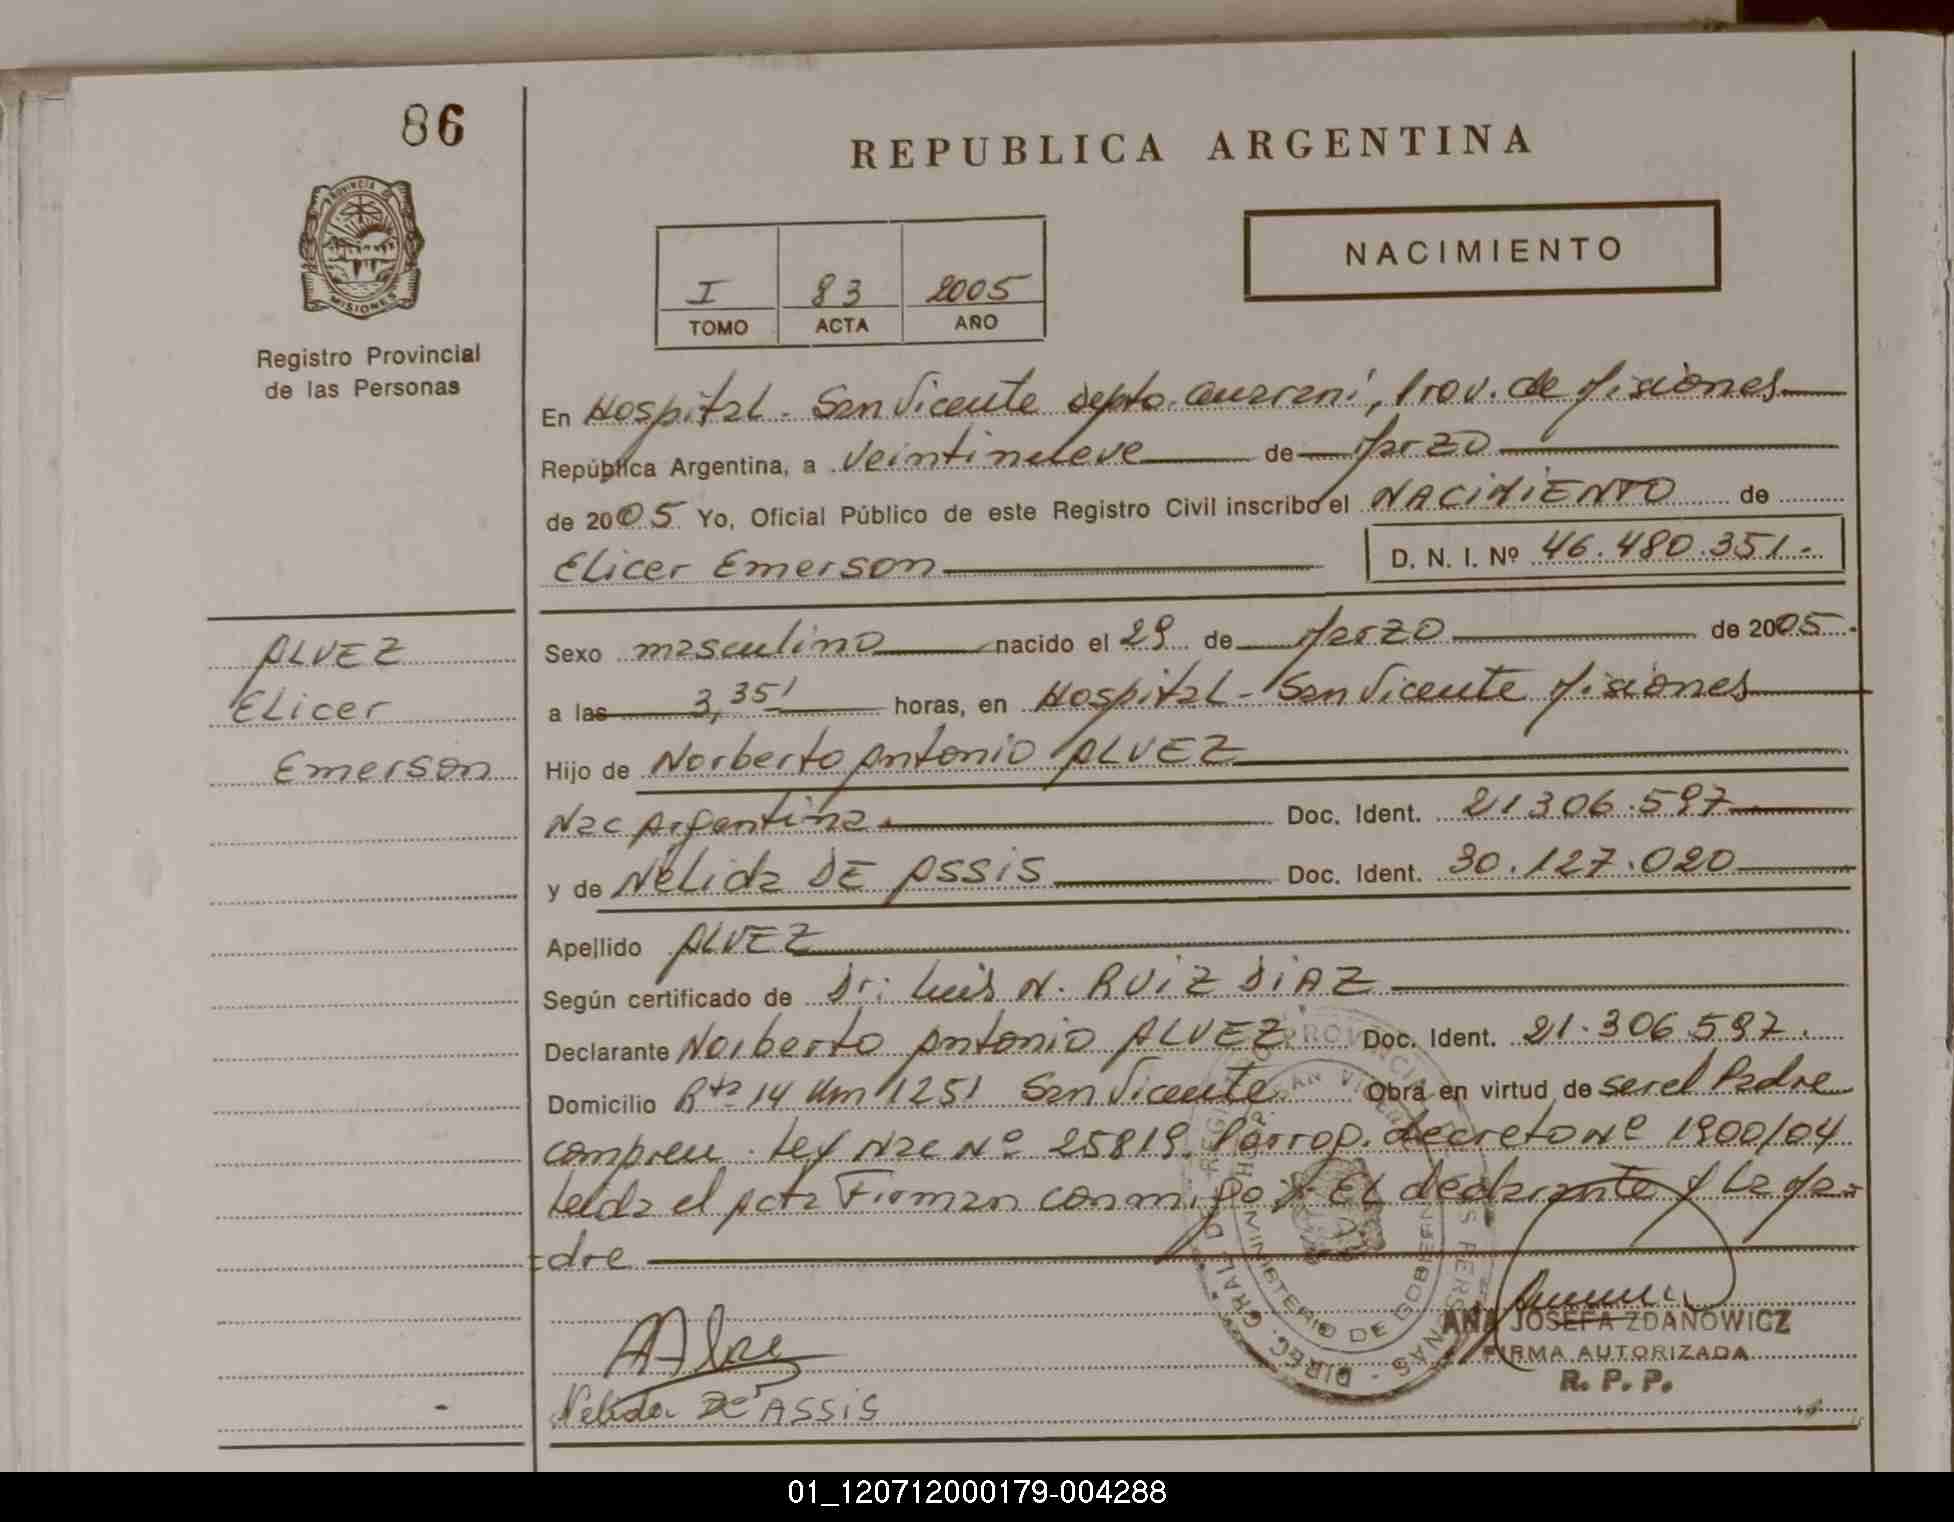 86
REPUBLICA ARGENTINA
PROVINCIA DE
MISIONES
Registro Provincial
de las Personas
NACIMIENTO
I 83 2005
TOMO ACTA AÑO
En Hospital - San Vicente Depto. Guarani, Prov. de Misiones
República Argentina, a veintinueve de Marzo
de 2005 Yo, Oficial Público de este Registro Civil inscribo el NACIMIENTO de
Elicer Emerson D. N. I. Nº 46.480.351.-
ALVEZ
Elicer
Emerson
Sexo masculino nacido el 29 de Marzo de 2005.
a las 3,35' horas, en Hospital - San Vicente Misiones
Hijo de Norberto Antonio ALVEZ
Nac Argentina. Doc. Ident. 21.306.597
y de Nélida DE ASSIS Doc. Ident. 30.127.020
Apellido ALVEZ
Según certificado de Dr: Luis N. RUIZ DIAZ
Declarante Norberto Antonio ALVEZ Doc. Ident. 21.306.597.
Domicilio Rta 14 Km 1251 San Vicente Obra en virtud de ser el Padre
compren. Ley Nac Nº 25819. Prorrop. decreto Nº 1900/04
Leida el Acta Firman conmigo: El declarante y La Ma=
=dre
DIREC. GRAL. DE REGISTRO PROVINCIAL DE LAS PERSONAS
MINISTERIO DE GOBIERNO
ANA JOSEFA ZDANOWICZ
FIRMA AUTORIZADA
R. P. P.
Nelida DE ASSIS
01_120712000179-004288